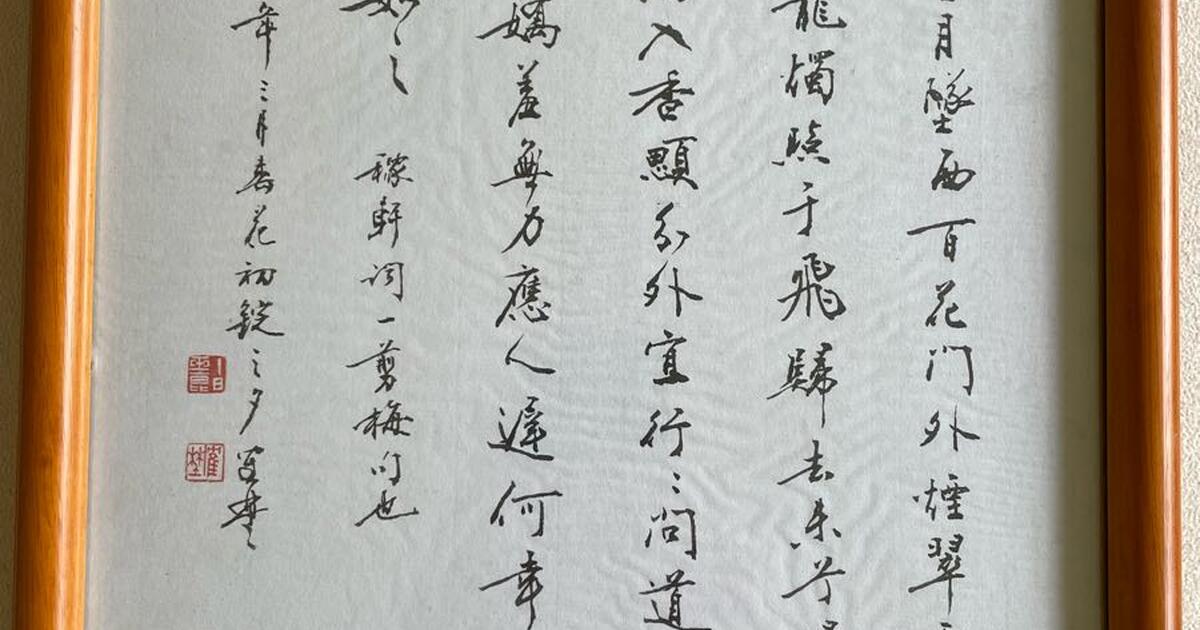 月墜西百花门外煙翠
籠燭照于飛歸去来兮
入香顋分外宜行〻問道
嬌羞無力應人遲何幸
如之 稼軒词一剪梅句也
年三月春花初綻之夕